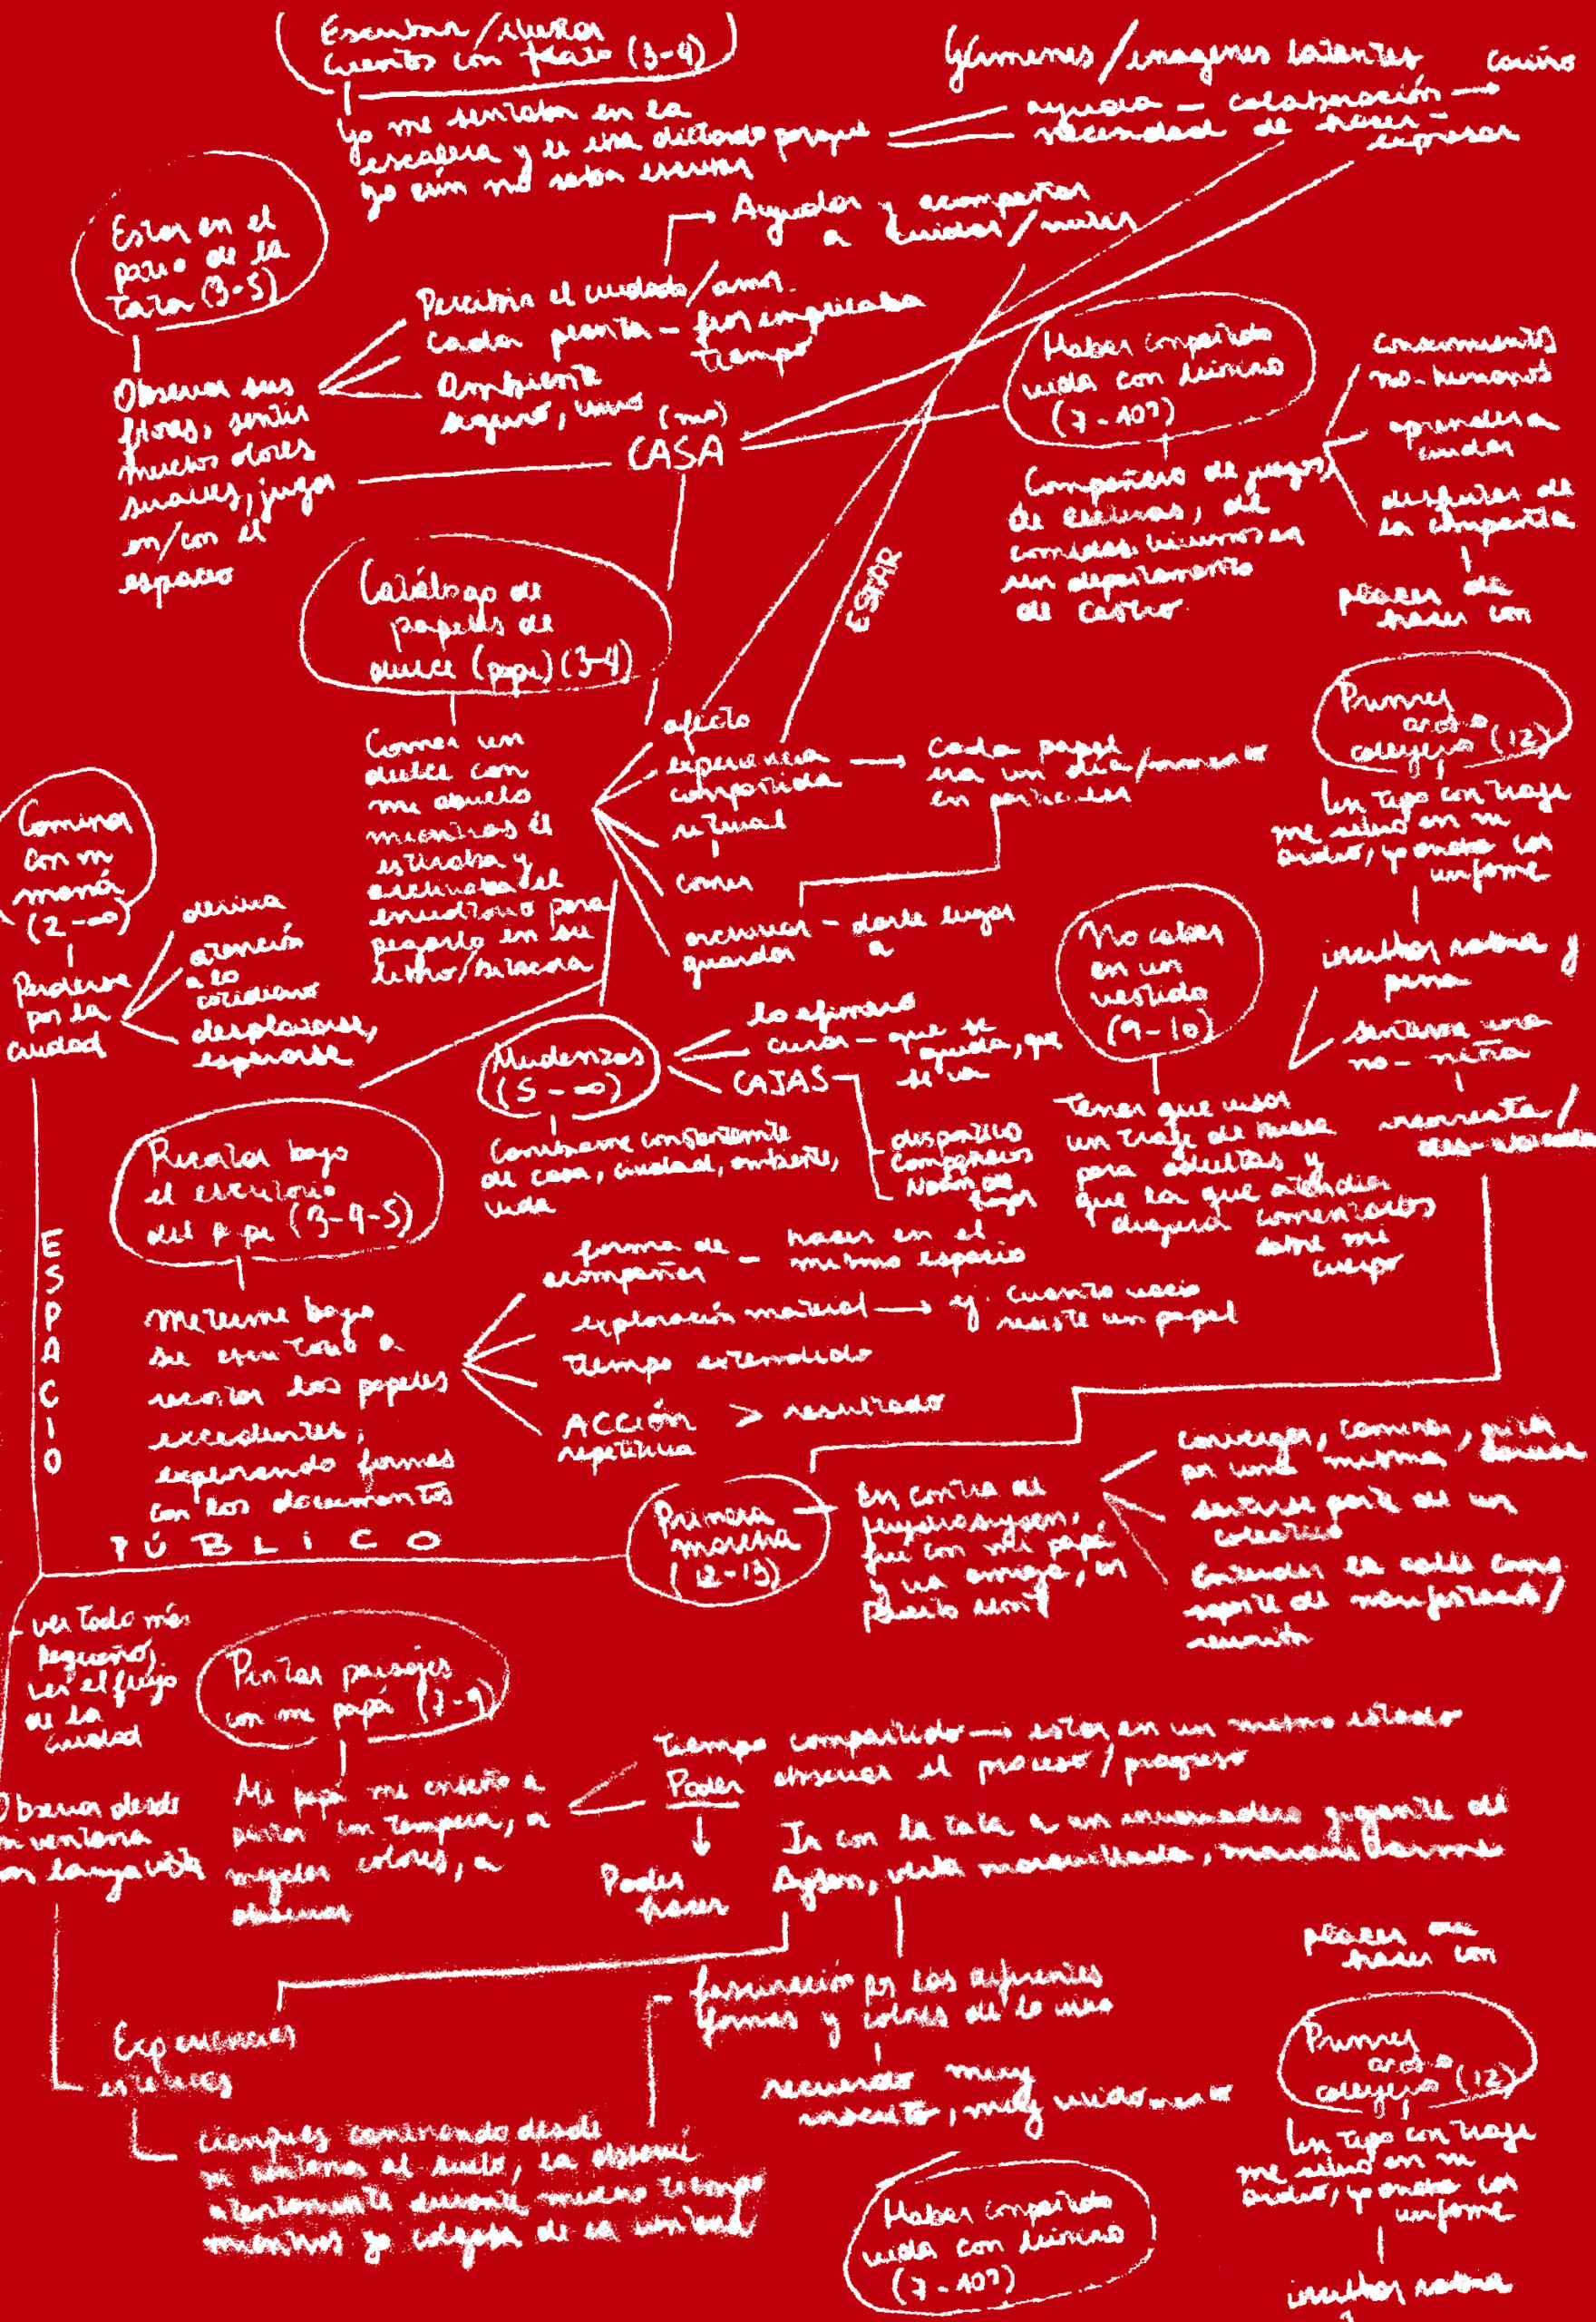 Escribir/ilustrar
cuentos con tata (3-4)
Yo me sentaba en la
escalera y le iba dictando porque
yo aún no sabía escribir
Gérmenes/imágenes latentes
cariño
ayuda — colaboración →
necesidad de hacer-
expresar
Estar en el
patio de la
Tata (3-5)
Observar sus
flores, sentir
muchos olores
suaves, jugar
en/con el
espacio
→ Ayudar y acompañar
a cuidar/nutrir
Percibir el cuidado/amor.
cada planta —
tiempo
ambiente
seguro, vivo
(mi)
CASA
Haber compartido
vida con
(7-10?)
Compañero de juegos,
de
comidas. vivimos en
un departamento
de Castro
conocimientos
no-humanos
aprender a
cuidar
disfrutar de
la compañía
placer de
hacer con
ESTAR
Catálogo de
papeles de
dulce (pope) (3-4)
Comer un
dulce con
mi abuelo
mientras él
estiraba y
archivaba el
envoltorio para
pegarlo en su
libro/bitácora
afecto
experiencia
compartida
→ Cada papel
era un día/momento
en particular
ritual
comer
archivar — darle lugar
guardar a
Caminar
con mi
mamá
(2-∞)
Perderse
por la
ciudad
deriva
atención
a lo
cotidiano
desplazarse,
esperarse
Primer
acoso
callejero (12)
Un tipo con traje
me silbó en mi
oído, yo andaba con
uniforme
incubar rabia y
pena
sentirme una
no-niña
No caber
en un
vestido
(9-10)
Tener que usar
un traje de
para adultas y
que la que atendía
dijera comentarios
sobre mi
cuerpo
Mudanzas
(5-∞)
Cambiarme constantemente
de casa, ciudad, ambiente,
vida
lo efímero
— que se
queda, que
se va
CAJAS
dispositivo
Noción de
lugar
Recortar bajo
el escritorio
del pope (3-4-5)
Meterme bajo
su escritorio a
recortar los papeles
excedentes,
explorando formas
con los documentos
forma de
acompañar
— hacer en el
mismo espacio
exploración material → ej. cuanto vacío
resiste un papel
tiempo extendido
ACCIÓN > resultado
repetitiva
ESPACIO
PÚBLICO
Primera
marcha
(12-13)
En contra de
hidroaysen,
fui con mi papá
y una amiga, en
puerto montt
Converger, caminar,
por una misma
sentirse parte de un
colectivo
Entender la calle como
soporte de
ver todo más
pequeño,
ver el flujo
de la
ciudad
Observar desde
mi ventana
con largavista
Pintar paisajes
con mi papá (7-9)
Mi papá me enseñó a
pintar con tempera, a
mezclar colores, a
observar
Tiempo compartido → estar en un mismo estado
Poder observar el proceso/progreso
Poder
hacer
Ir con la tata a un invernadero gigante de
Aysén, verla maravillada, maravillarme
fascinación por las diferentes
formas y colores de lo vivo
recuerdo muy
Experiencias
estéticas
ciempiés caminando desde
mi ventana al suelo, la observé
atentamente durante mucho tiempo
mientras yo colgaba de la ventana
placer de
hacer con
Primer
acoso
callejero (12)
Un tipo con traje
me silbó en mi
oído, yo andaba con
uniforme
incubar rabia
Haber compartido
vida con
(7-10?)